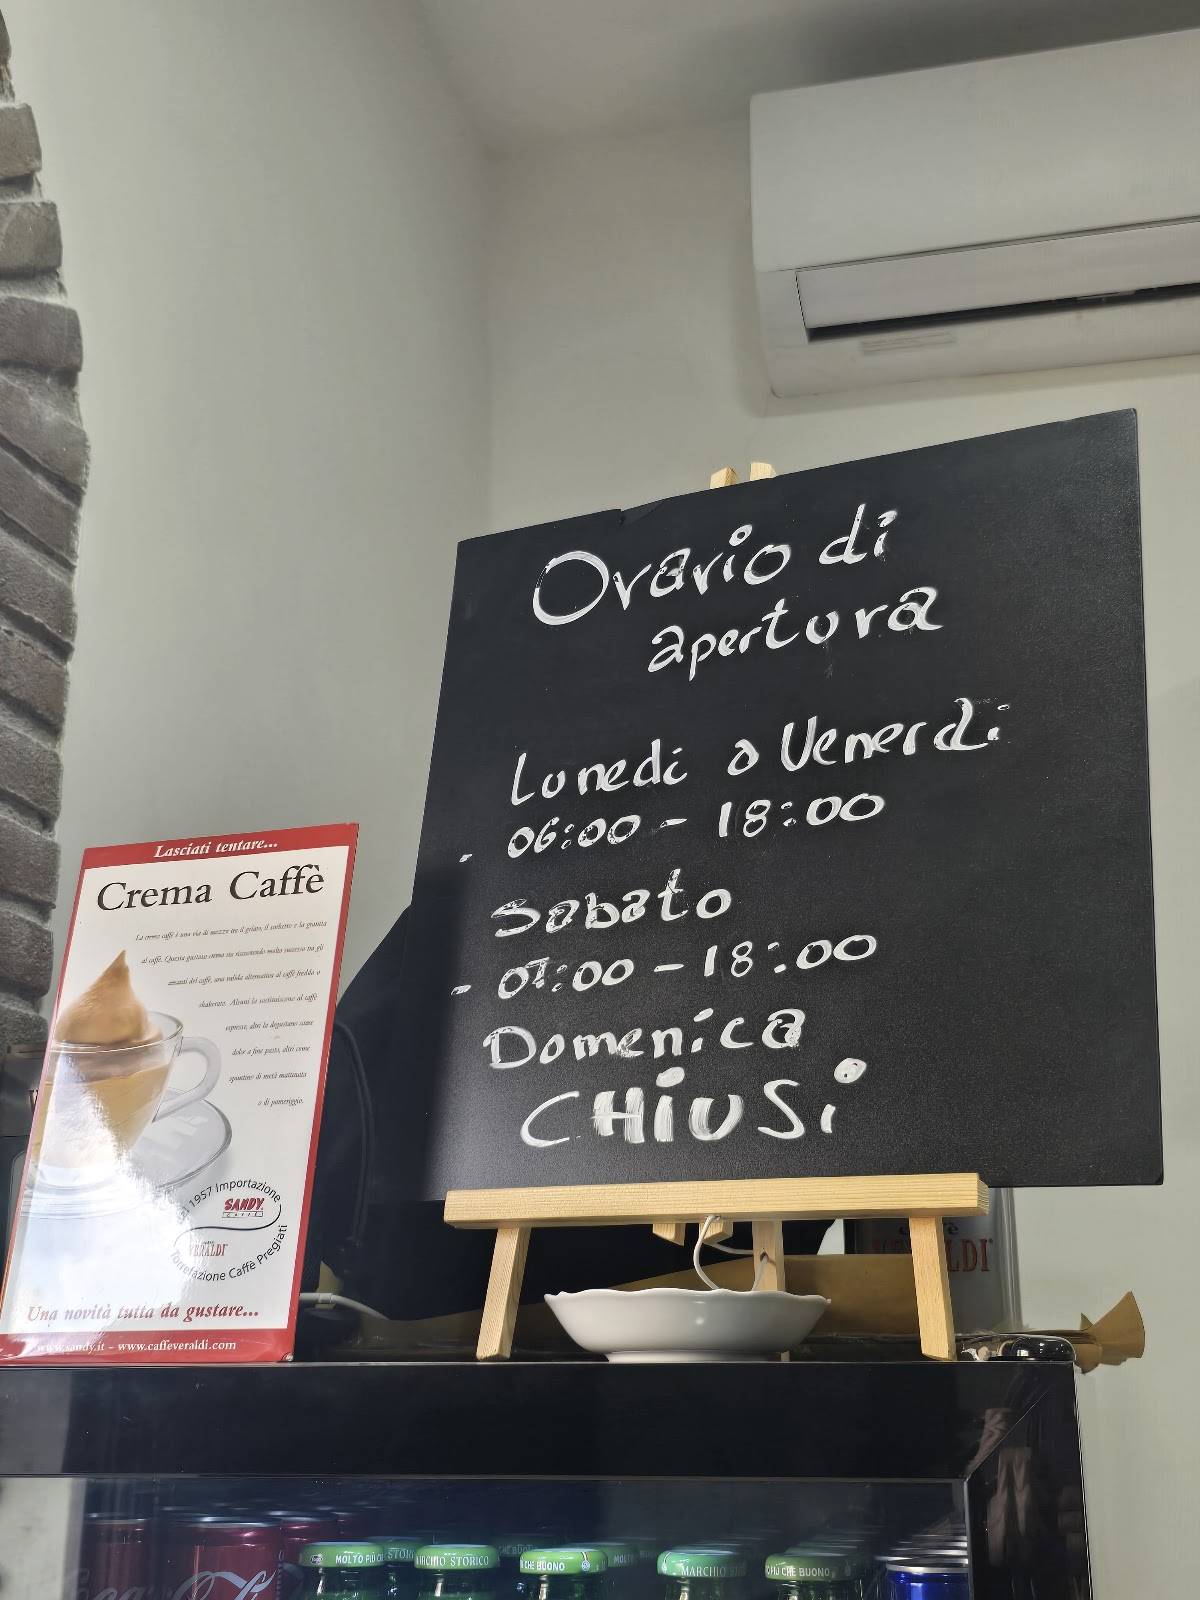 Orario di
apertura
Lunedi a Venerdi
- 06:00 - 18:00
Sabato
- 07:00 - 18:00
Domenica
CHIUSi
Lasciati tentare...
Crema Caffè
La crema caffè è una via di mezzo tra il gelato, il sorbetto e la granita
al caffè. Questa gustosa crema sta riscuotendo molto successo tra gli
amanti del caffè, una valida alternativa al caffè freddo o
shakerato. Alcuni la sostituiscono al caffè
espresso, altri la degustano come
dolce a fine pasto, altri come
spuntino di metà mattinata
o di pomeriggio.
1957 Importazione
SANDY
CAFFÈ
VERALDI
Torrefazione Caffè Pregiati
Una novità tutta da gustare...
www.sandy.it - www.caffeveraldi.com
MOLTO PIÙ
MARCHIO STORICO
CHE BUONO
MARCHIO
PIÙ CHE BUONO